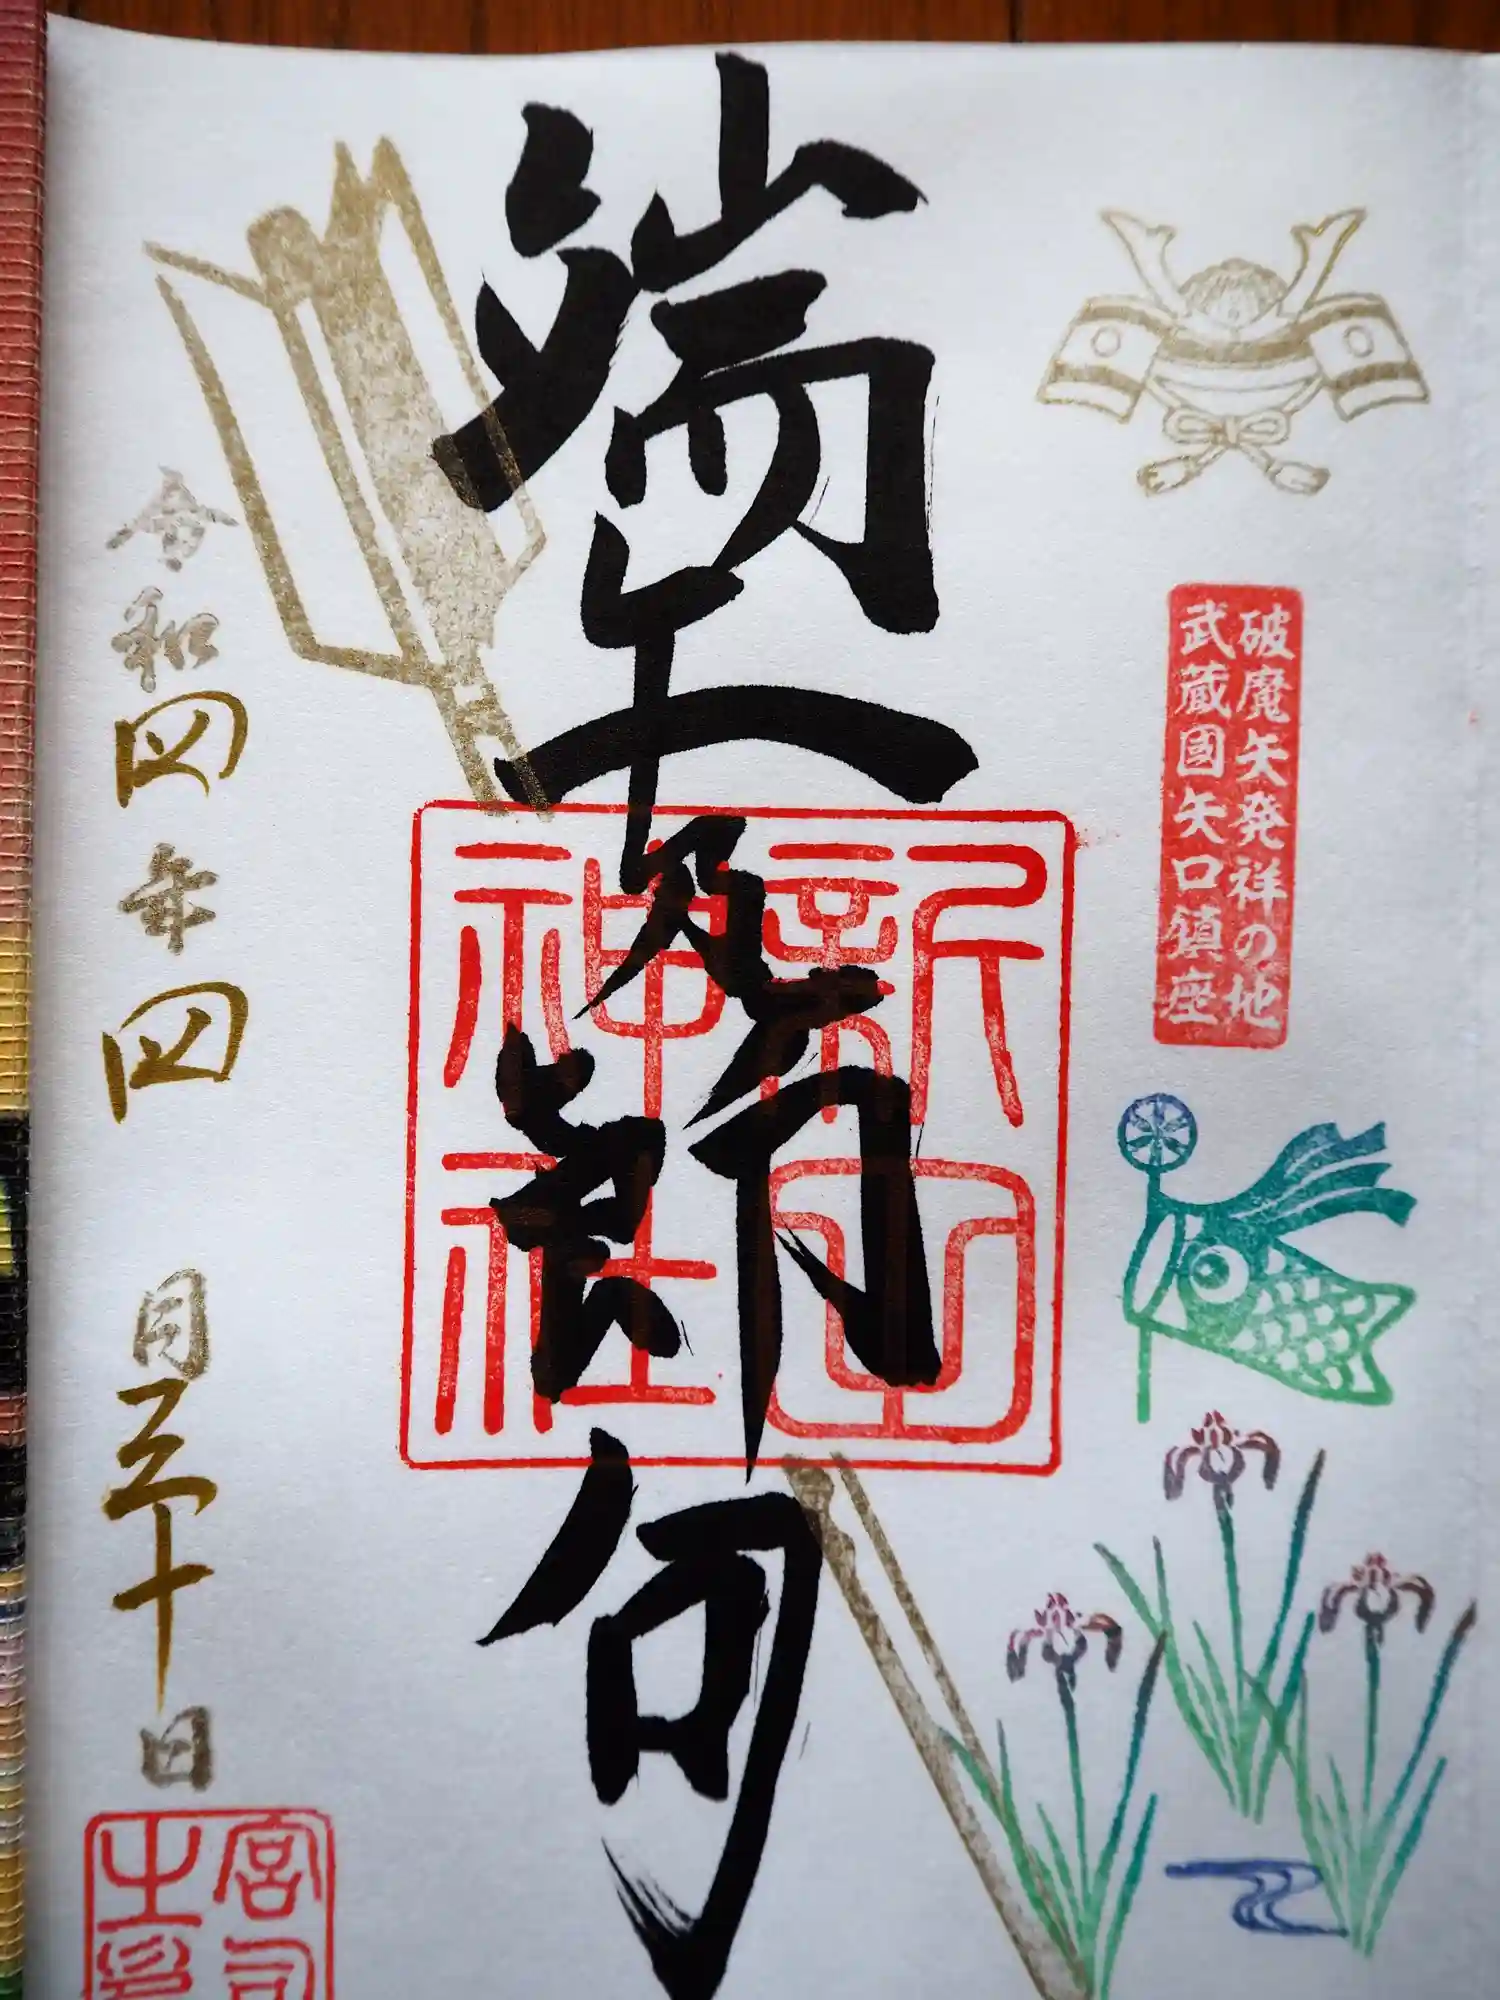 破魔矢発祥の地
武蔵國矢口鎮座
端午乃節句
新田
神社
令和四年四月三十日
宮司
之印